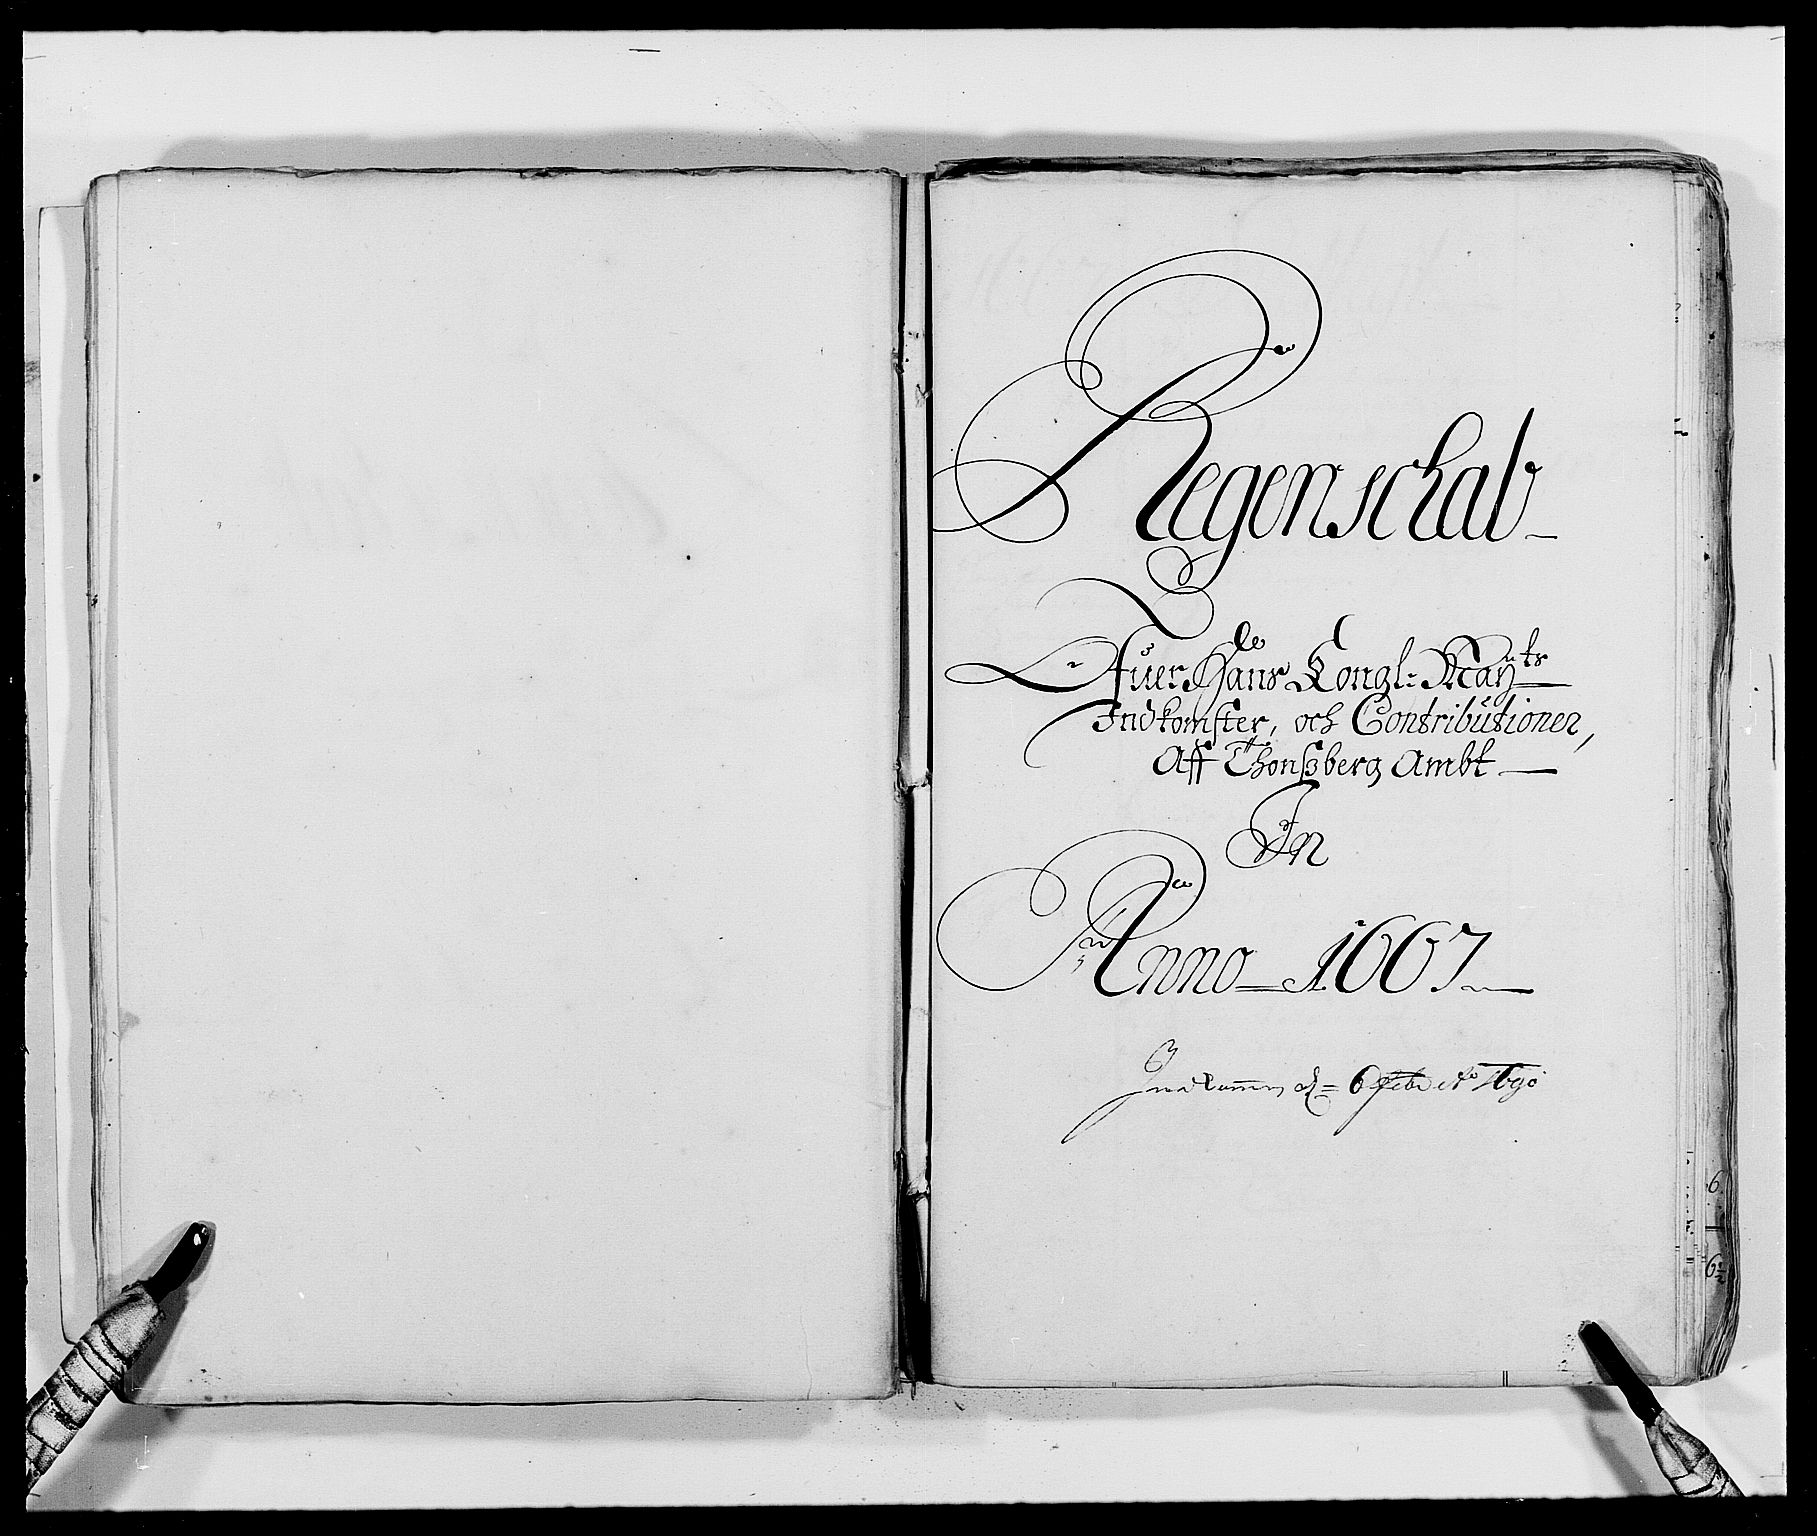 Regenschab
Ofuer Hans Kongl: Mayts
Indkomster, och Contributioner,
Aff Thonßberg Ambt
In
Anno 1687
Indkommen d= 6 Febr Ao 1690
6
6½